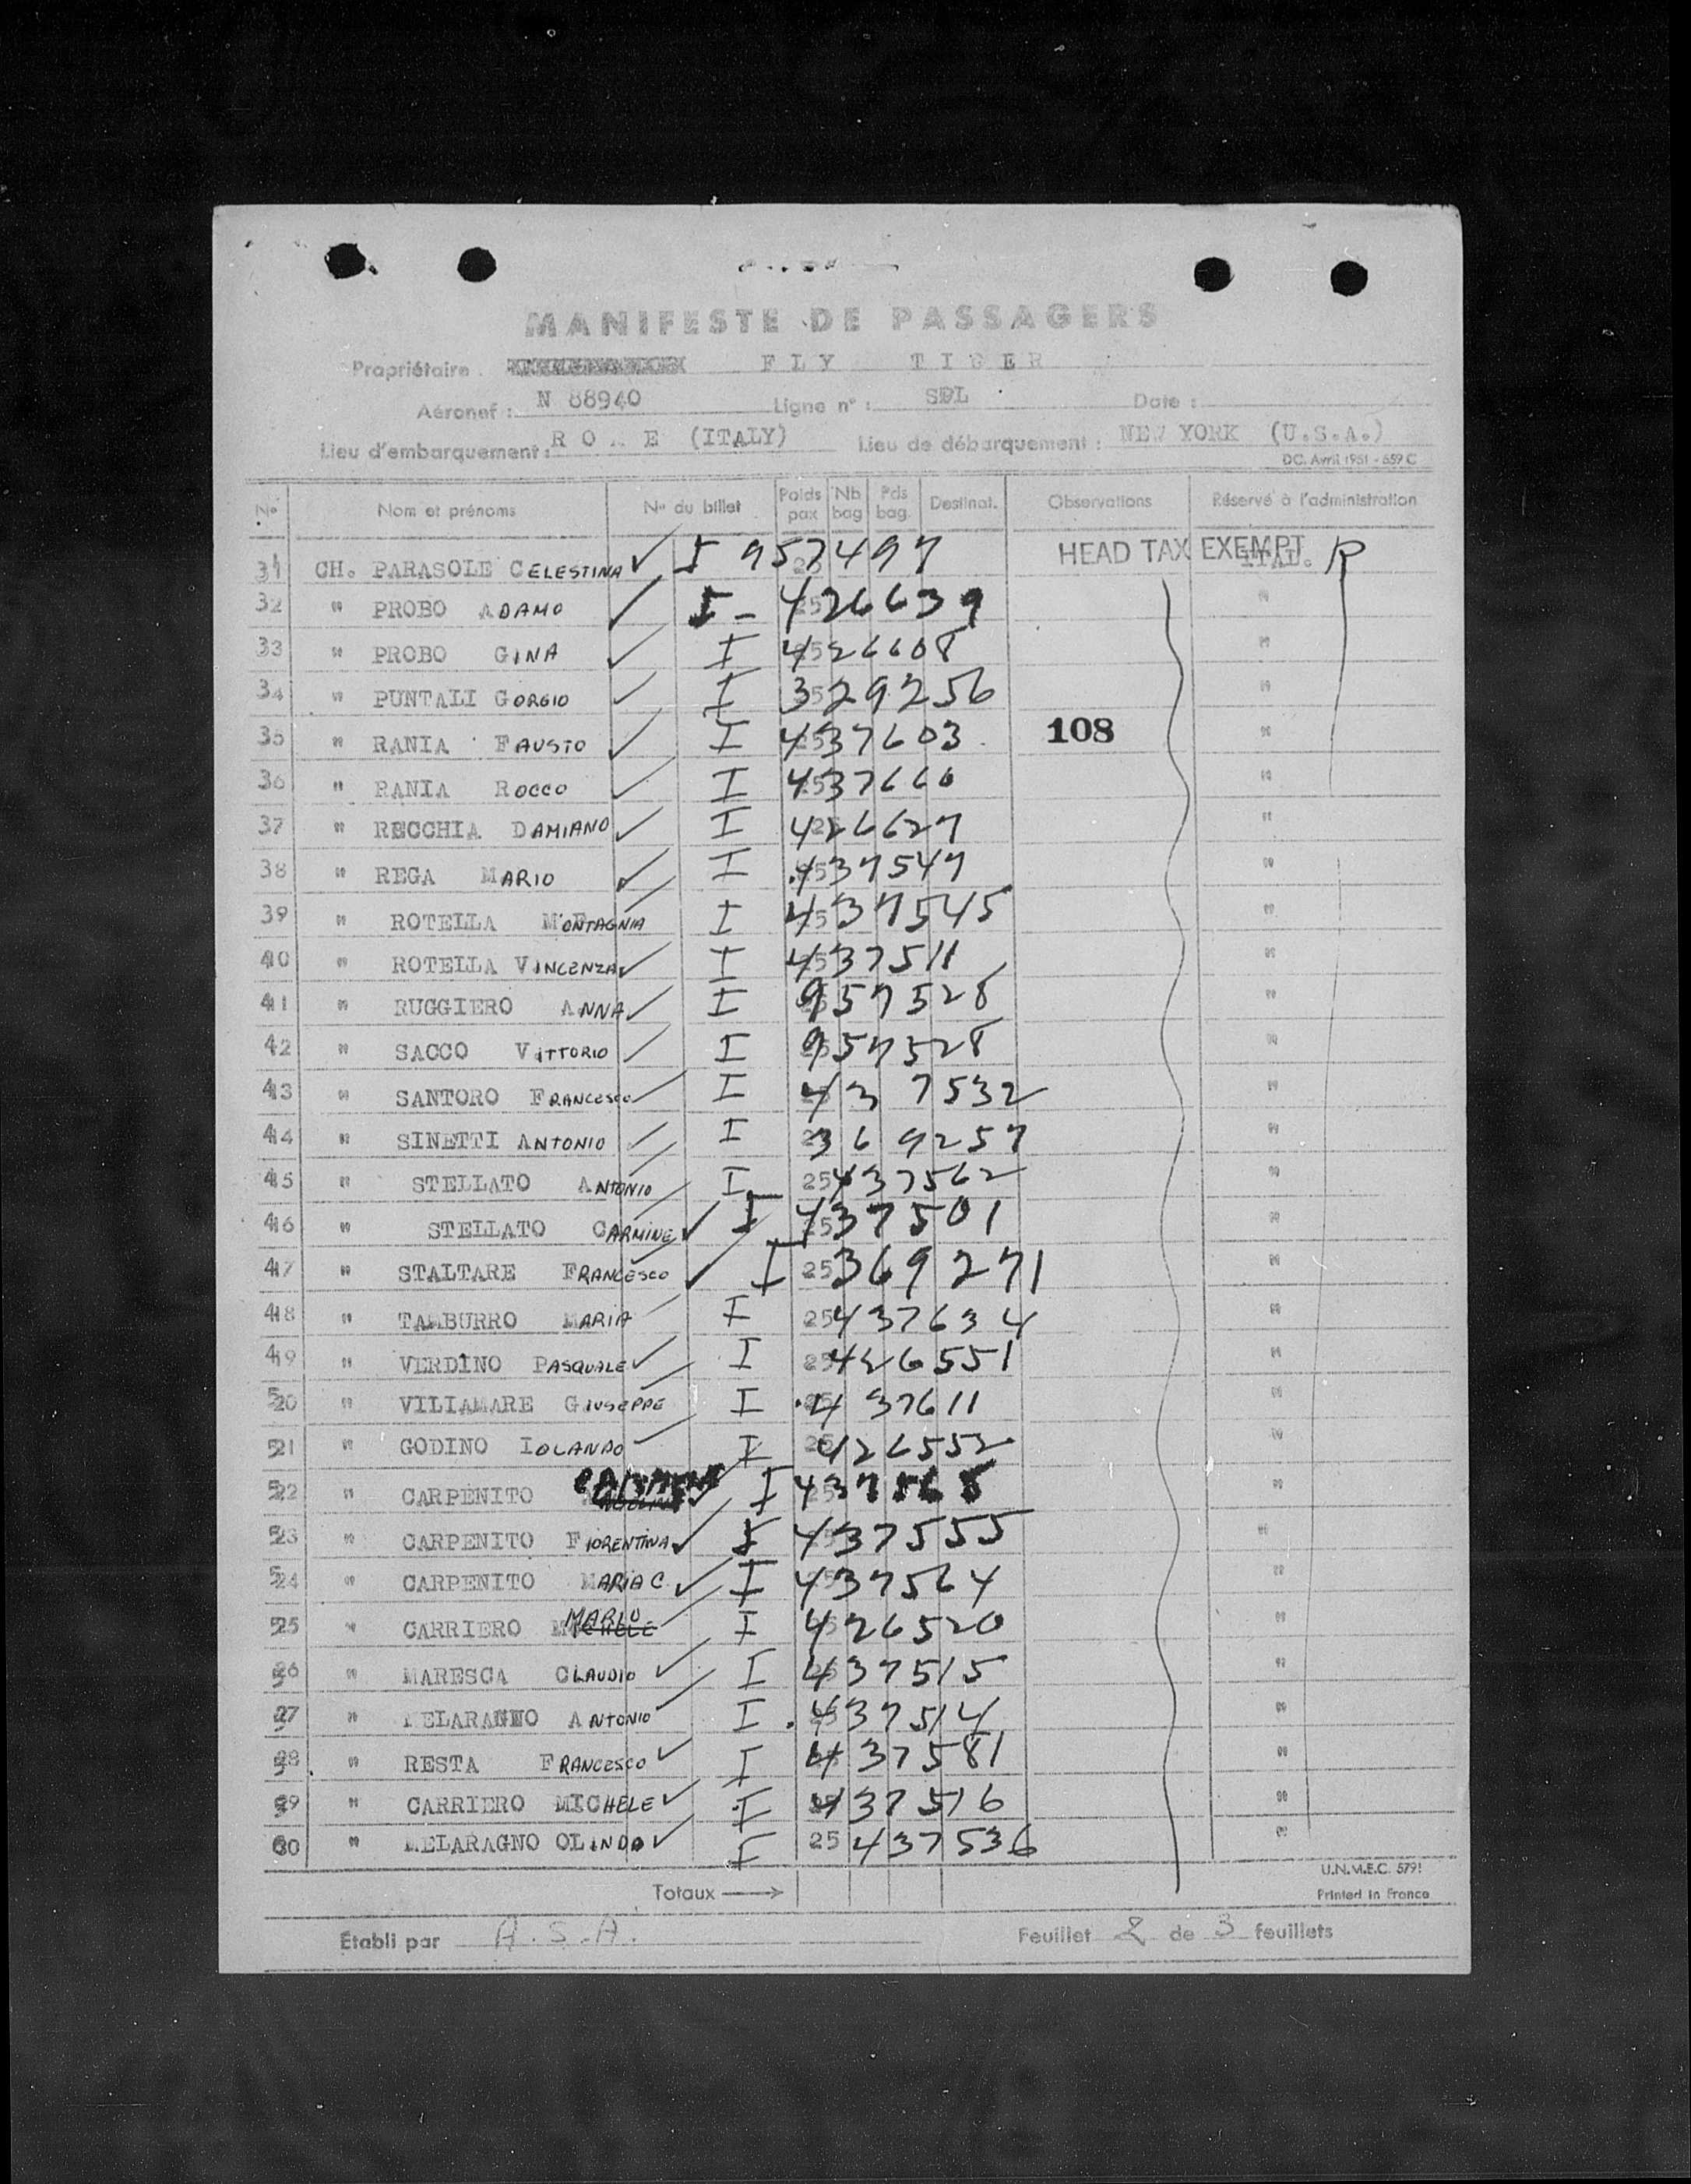 MANIFESTE DE PASSAGERS
Propriétaire FLY TIGER
Aéronef : N 88940 Ligne n° : SDL Date :
Lieu d'embarquement : ROME (ITALY) Lieu de débarquement : NEW YORK (U.S.A.)
DC. Avril 1951 - 659 C
N° Nom et prénoms N° du billet Poids pax Nb bag Pds bag. Destinat. Observations Réservé à l'administration
31 CH. PARASOLE CELESTINA I 957497 HEAD TAX EXEMPT ITAL. R
32 " PROBO ADAMO I - 25 426639 "
33 " PROBO GINA I 25 426608 "
34 " PUNTALI GORGIO I 25 329256 "
35 " RANIA FAUSTO I 25 437603 108 "
36 " RANIA ROCCO I 25 437660 "
37 " RECCHIA DAMIANO I 25 426627 "
38 " REGA MARIO I 25 437547 "
39 " ROTELLA MONTAGNIA I 25 437545 "
40 " ROTELLA VINCENZA I 25 437511 "
41 " RUGGIERO ANNA I 957528 "
42 " SACCO VITTORIO I 957528 "
43 " SANTORO FRANCESCO I 437532 "
44 " SINETTI ANTONIO I 369257 "
45 " STELLATO ANTONIO I 25 437562 "
46 " STELLATO CARMINE I 25 437501 "
47 " STALTARE FRANCESCO I 25 369271 "
48 " TAMBURRO MARIA I 25 437634 "
49 " VERDINO PASQUALE I 25 426551 "
50 " VILIAMARE GIUSEPPE I 437611 "
51 " GODINO IOLANDO I 25 426552 "
52 " CARPENITO CARMINE I 25 437568 "
53 " CARPENITO FIORENTINA I 437555 "
54 " CARPENITO MARIA C. I 25 437564 "
55 " CARRIERO MICHELE MARIO I 25 426520 "
56 " MARESCA CLAUDIO I 437515 "
57 " MELARAGNO ANTONIO I 437514 "
58 " RESTA FRANCESCO I 437581 "
59 " CARRIERO MICHELE I 437516 "
60 " MELARAGNO OLINDO I 25 437536 "
Totaux →
U.N.M.E.C. 5791
Printed in France
Établi par A.S.A. Feuillet 2 de 3 feuillets